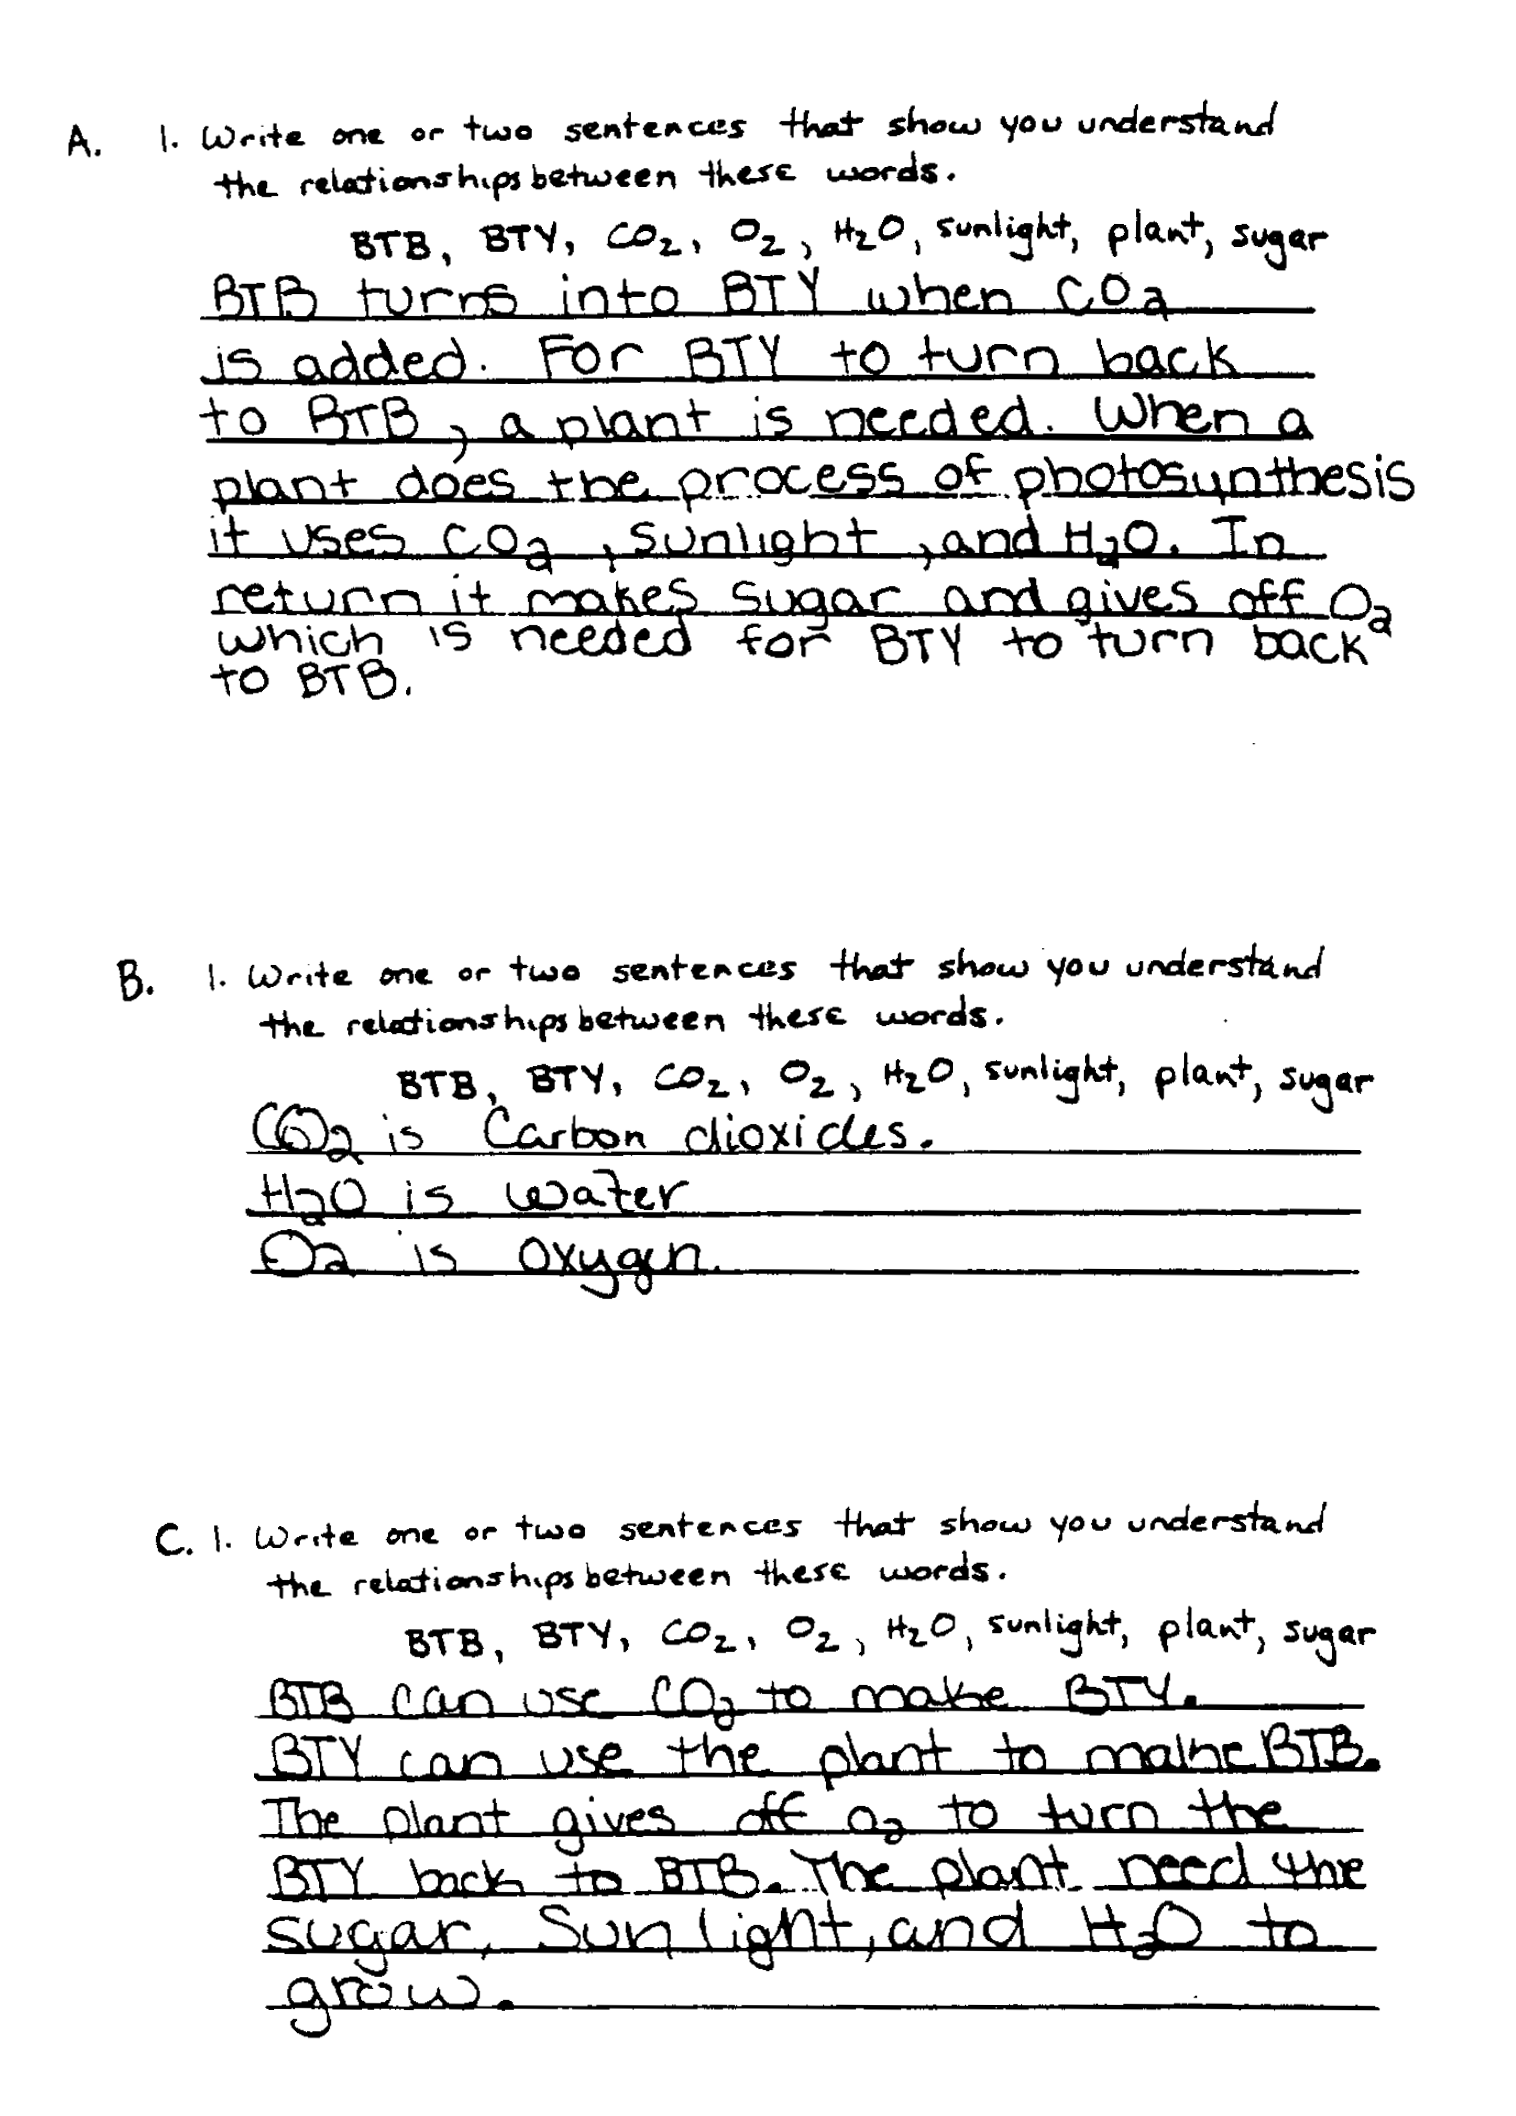 A. 1. Write one or two sentences that show you understand
the relationships between these words.
BTB, BTY, CO₂, O₂, H₂O, sunlight, plant, sugar
BTB turns into BTY when CO₂
is added. For BTY to turn back
to BTB, a plant is needed. When a
plant does the process of photosynthesis
it uses CO₂, sunlight, and H₂O. In
return it makes sugar and gives off O₂
which is needed for BTY to turn back
to BTB.
B. 1. Write one or two sentences that show you understand
the relationships between these words.
BTB, BTY, CO₂, O₂, H₂O, sunlight, plant, sugar
CO₂ is Carbon dioxides.
H₂O is water
O₂ is oxygen.
C. 1. Write one or two sentences that show you understand
the relationships between these words.
BTB, BTY, CO₂, O₂, H₂O, sunlight, plant, sugar
BTB can use CO₂ to make BTY.
BTY can use the plant to make BTB.
The plant gives off O₂ to turn the
BTY back to BTB. The plant need the
sugar, Sun light, and H₂O to
grow.